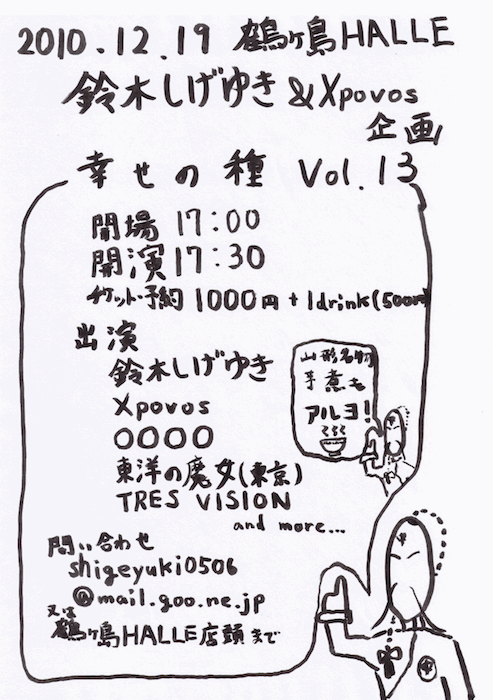 2010.12.19 鶴ヶ島HALLE
鈴木しげゆき&Xpovos
企画
幸せの種 Vol.13
開場 17:00
開演 17:30
チケット・予約 1000円+1drink(500円)
出演
鈴木しげゆき
Xpovos
OOOO
東洋の魔女(東京)
TRES VISION
and more...
山形名物
芋煮も
アルヨ!
問い合わせ
shigeyuki0506
@mail.goo.ne.jp
又は
鶴ヶ島HALLE店頭まで
中
中